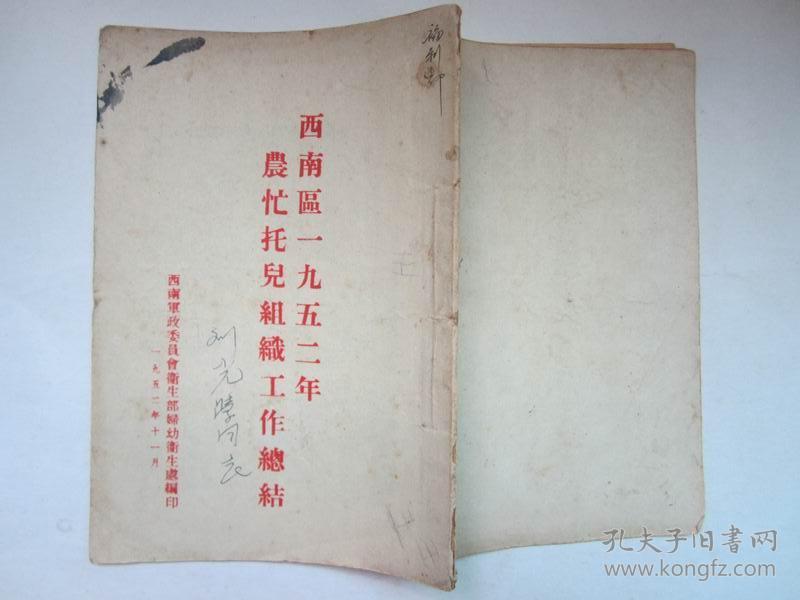 福利部
西南區一九五二年
農忙托兒組織工作總結
西南軍政委員會衛生部婦幼衛生處編印
一九五二年十一月
孔夫子旧书网
www.kongfz.com